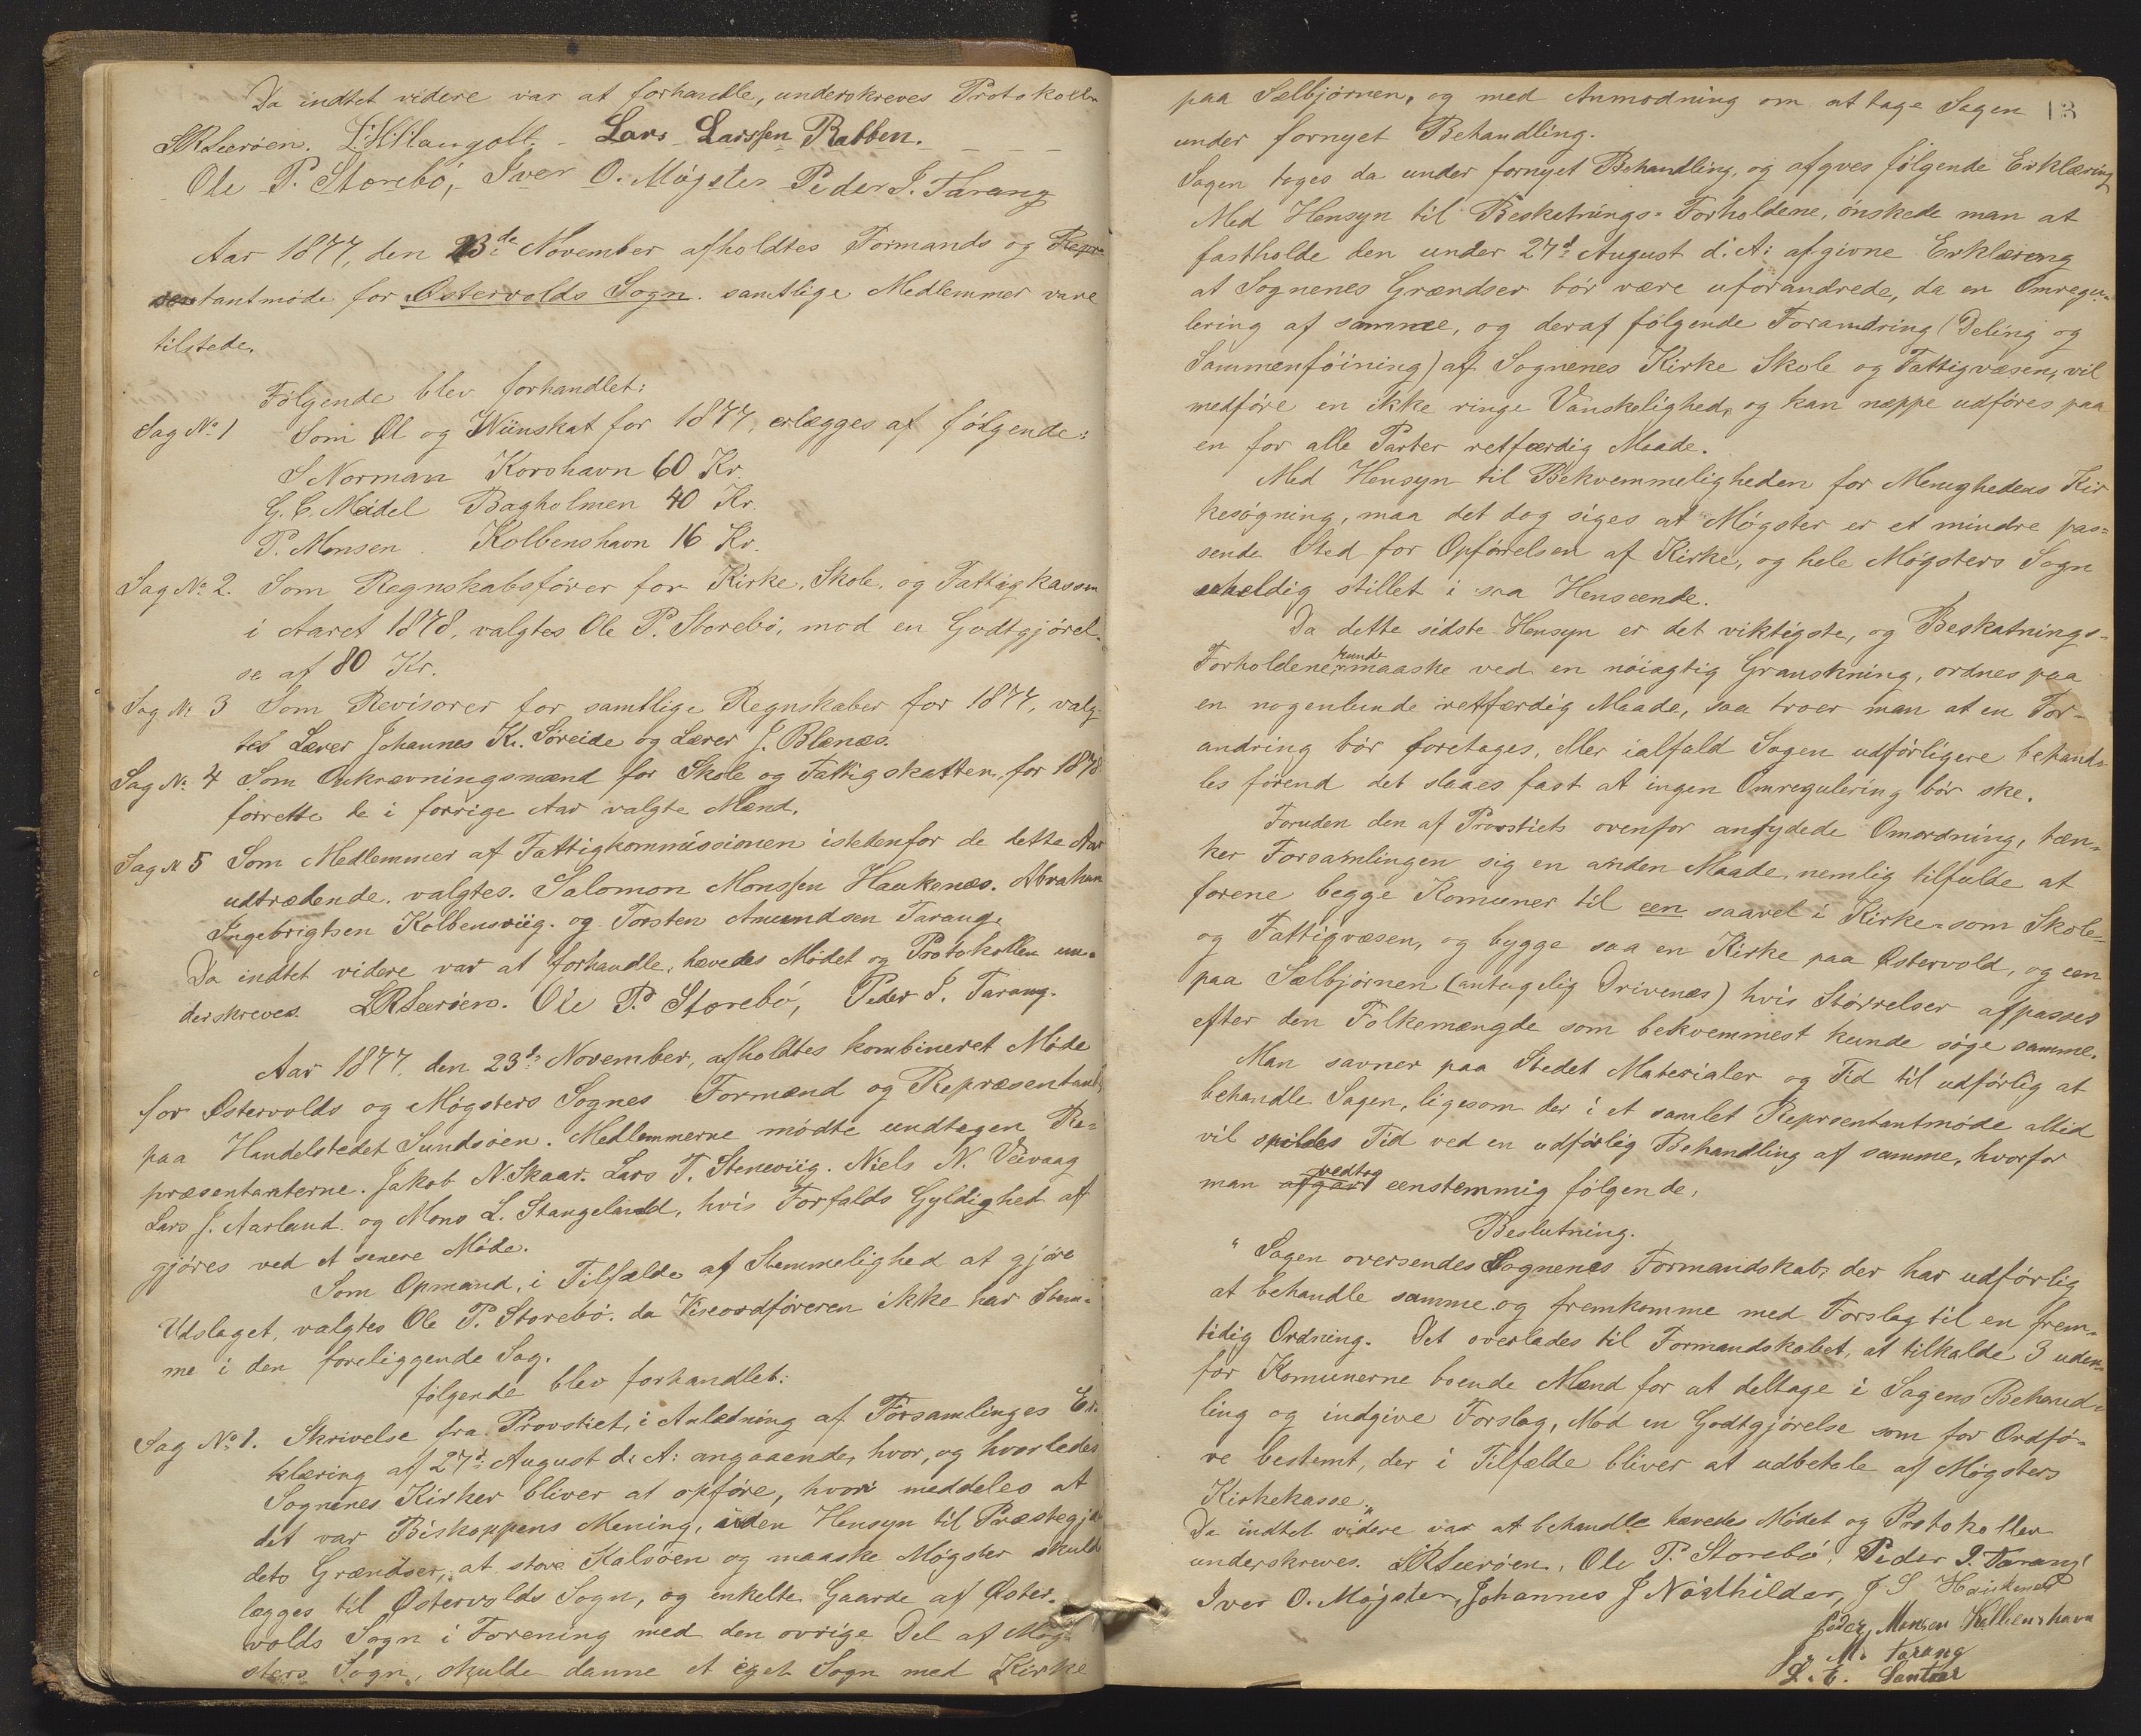 Da indtet videre var at forhandle, underskreves Protokollen
Lars Larssen Rabben.
Ole P. Storebö, Iver O. Mögster Peder J. Tarang
Aar 1877, den 23de November afholdtes Formands og Repræ-
sentantmöde for Østervolds Sogn. samtlige Medlemmer vare
tilstede.
Fölgende blev forhandlet:
Sag No 1 Som Øl og Viinskat for 1877, erlægges af fölgende:
S Norman Korshavn 60 Kr.
G. C. Meidel Bagholmen 40 Kr.
P. Monsen. Kolbenshavn 16 Kr.
Sag No 2. Som Regnskabsförer for Kirke, Skole, og Fattigkassen
i Aaret 1878, valgtes Ole P. Storebö, mod en Godtgjörel-
se af 80 Kr.
Sag No 3 Som Revisorer for samtlige Regnskaber for 1877, valg-
tes Lærer Johannes Kr. Söreide og Lærer J. Blænæs.
Sag No 4 Som Inkrævningsmænd for Skole og Fattigskatten for 1878
forrette de i forrige Aar valgte Mænd.
Sag N 5 Som Medlemmer af Fattigkommissionen istedenfor de dette Aar
udtrædende, valgtes. Salomon Monssen Haukenæs. Abraham
Ingebrigtsen Kolbensviig. og Torsten Amundsen Tarang.
Da indtet videre var at forhandle, hævedes Mödet og Protokollen un-
derskreves. LRLeeröen. Ole P. Storebö, Peder J. Tarang.
Aar 1877, den 23d: November, afholdtes kombineret Möde
for Østervolds og Mögsters Sognes Formænd og Repræsentant
paa Handelstedet Sundsöen. Medlemmerne mödte undtagen Re-
præsentanterne. Jakob N. Skaar. Lars T. Steneviig. Niels N. Vevaag
Lars J. Aarland. og Mons L. Stangeland, hvis Forfalds Gyldighet af
gjöres ved et senere Möde.
Som Opmand, i Tilfælde af Stemmelighed at gjöre
Udslaget, valgtes Ole P. Storebö. da Viseordföreren ikke har Stem-
me i den foreliggende Sag.
fölgende blev forhandlet:
Sag No 1. Skrivelse fra Provstiet, i Anledning af Forsamlinges Er-
klæring af 27d: August d: A: angaaende, hvor, og hvorledes
Sognenes Kirker bliver at opföre, hvori meddeles at
det var Biskoppens Mening, uden Hensyn til Præstegjæl
dets Grændser, at store Kalsöen og maaske Mögster skulde
lægges til Østervolds Sogn, og enkelte Gaarde af Øster-
volds Sogn i Forening med den ovrige Del af Mög-
sters Sogn, skulde danne et eget Sogn med Kirke
13
paa Sælbjörnen, og med Anmodning om at tage Sagen
under fornyet Behandling.
Sagen toges da under fornyet Behandling, og afgves fölgende Erklæring
Med Hensyn til Beskatnings-Forholdene, önskede man at
fastholde den under 27d: August d: A: afgivne Erklæring
at Sognenes Grændser bör være uforandrede, da en Omregu-
lering af samme, og deraf fölgende Forandring (Deling og
Sammenföining) af Sognenes Kirke Skole og Fattigvæsen, vil
medföre en ikke ringe Vanskelighed, og kan næppe udföres paa
en for alle Parter retfærdig Maade.
Med Hensyn til Bekvemmeligheden for Menighedens Kir
kesögning, maa det dog siges at Mögster er et mindre pas-
sende Sted for Opförelsen af Kirke, og hele Mögsters Sogn
uheldig stillet i saa Henseende.
Da dette sidste Hensyn er det viktigste, og Beskatnings-
Forholdene kunde maaske ved en nöiagtig Granskning, ordnes paa
en nogenlunde retfærdig Maade, saa troer man at en For-
andring bör foretages, eller ialfald Sagen udförligere behand-
les förend det slaaes fast at ingen Omregulering bör ske.
Foruden den af Provstiets ovenfor antydede Omordning, tæn-
ker Forsamlingen sig en anden Maade, nemlig tilfulde at
forene begge Komuner til een saavel i Kirke- som Skole-
og Fattigvæsen, og bygge saa en Kirke paa Østervold, og een
paa Sælbjörnen (antagelig Drivenæs) hvis Störrelser afpasses
efter den Folkemængde som bekvemmest kunde söge samme.
Man savner paa Stedet Materialer og Tid til udförlig at
behandle Sagen, ligesom der i et samlet Reprsentantmöde altid
vil spildes Tid ved en udförlig Behandling af samme, hvorfor
man vedtog eenstemmig fölgende,
Beslutning.
"Sagen oversendes Sognenes Formandskab, der har udförlig
at behandle samme og fremkomme med Forslag til en frem-
tidig Ordning. Det overlades til Formandskabet, at tilkalde 3 uden-
for Komunerne boende Mænd for at deltage i Sagens Behand-
ling og indgive Forslag, Mod en Godtgjörelse som for Ordfö-
re bestemt, der i Tilfælde bliver at udbetale af Mögsters
Kirkekasse."
Da indtet videre var at behandle hævedes Mödet og Protokollen
underskreves. LRLeeröen, Ole P. Storebö, Peder J. Tarang
Iver O. Mögster, Johannes J Nösthildar, J S Haukenæs
Peder Monsen Kolbenshavn
J. M. Tarang
L. E.